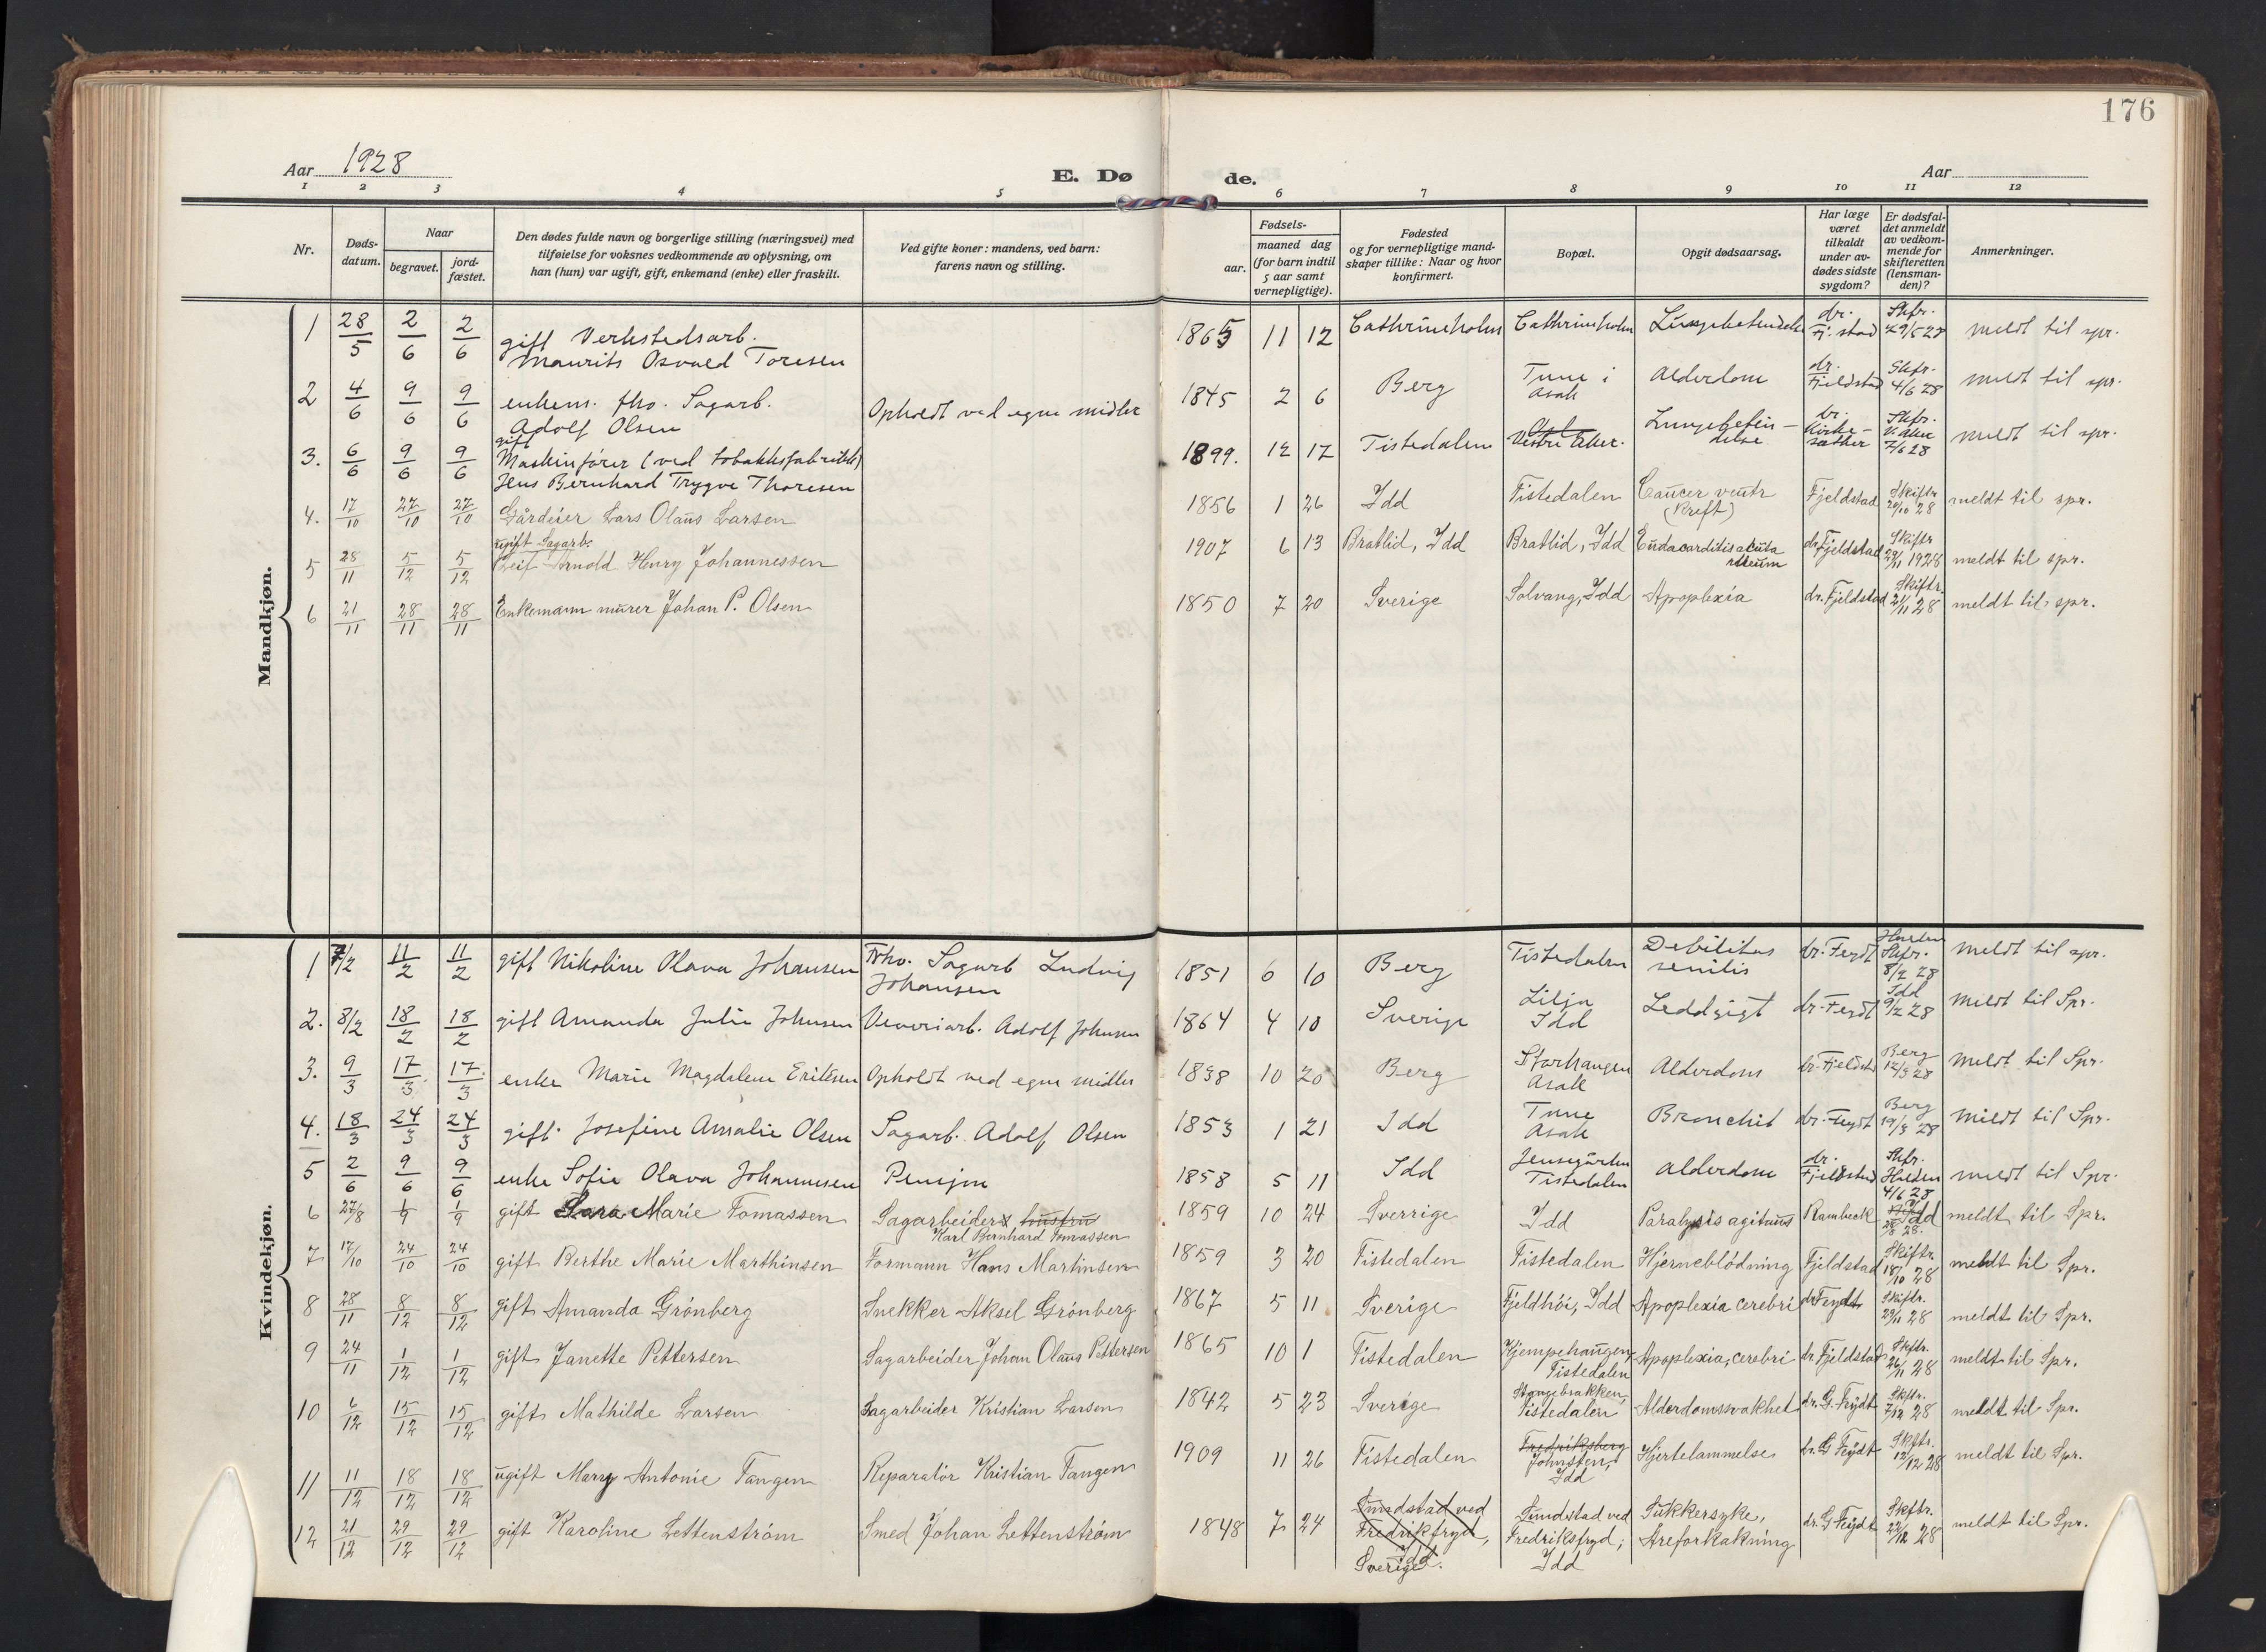 176
Aar 1928
E. Dø de.
Aar
1 2 3 4 5 6 7 8 9 10 11 12
Nr.
Døds-datum.
Naar
begravet.
jord-fæstet.
Den dødes fulde navn og borgerlige stilling (næringsvei) med
tilføielse for voksnes vedkommende av oplysning, om
han (hun) var ugift, gift, enkemand (enke) eller fraskilt.
Ved gifte koner: mandens, ved barn:
farens navn og stilling.
Fødsels-
aar.
maaned dag
(for barn indtil
5 aar samt
vernepligtige).
Fødested
og for vernepligtige mand-
skaper tillike: Naar og hvor
konfirmert.
Bopæl.
Opgit dødsaarsag.
Har læge
været
tilkaldt
under av-
dødes sidste
sygdom?
Er dødsfal-
det anmeldt
av vedkom-
mende for
skifteretten
(lensman-
den)?
Anmerkninger.
Mandkjøn.
1 28/5 2/6 2/6 gift Verkstedsarb. Maurits Osvald Toresen 1865 11 12 Cathrineholm Cathrineholm Lungebetendelse dr. Fj.stad Skfr. 29/5 28 meldt til spr.
2 4/6 9/6 9/6 enkem. fho. Sagarb. Adolf Olsen Opholdt ved egne midler 1845 2 6 Berg Tune i Asak Alderdom dr. Fjeldstad Skfr. 4/6 28 meldt til spr.
3. 6/6 9/6 9/6 gift Maskinfører (ved tobakksfabrikk) Jens Bernhard Trygve Thoresen 1899. 12 17 Tistedalen Vestre Aker. Lungebeten-delse dr. Kirke-sæther Skfr. V. Aker 7/6 28 meldt til spr.
4. 17/10 27/10 27/10 Gårdeier Lars Olaus Larsen 1856 1 26 Idd Tistedalen Cancer ventr (Kreft) Fjeldstad Skiftr 20/10 28 meldt til spr.
5 28/11 5/12 5/12 ugift Sagarb. Leif Arnold Henry Johannessen 1907 6 13 Bratlid, Idd Bratlid, Idd Endacarditis acuta rheum dr. Fjeldstad Skiftr 29/11 1928 meldt til spr.
6 21/11 28/11 28/11 Enkemann murer Johan P. Olsen 1850 7 20 Sverige Solvang, Idd Apoplexia dr. Fjeldstad Skiftr. 21/11 28 meldt til spr.
Kvindekjøn.
1 7/2 11/2 11/2 gift Nikoline Olava Johansen Fhv. Sagarb Ludvig Johansen 1851 6 10 Berg Tistedalen Debilitas senilis dr. Feydt Halden Skfr. 8/2 28 meldt til spr.
2. 8/2 18/2 18/2 gift Amanda Julie Johnsen Veveriarb. Adolf Johnsen 1864 4 10 Sverige Lilja Idd Leddgigt dr. Feydt Idd 9/2 28 meldt til Spr.
3. 9/3 17/3 17/3 enke Marie Magdalene Eriksen Opholdt ved egne midler 1838 10 20 Berg Storhaugen Asak Alderdom dr. Fjeldstad Berg 12/3 28 meldt til Spr.
4. 18/3 24/3 24/3 gift Josefine Amalie Olsen Sagarb. Adolf Olsen 1853 1 21 Idd Tune Asak Bronchit dr. Feydt Berg 19/3 28 meldt til Spr.
5 2/6 9/6 9/6 enke Sofie Olava Johannesen Pensjon 1858 5 11 Idd Jensegården Tistedalen Alderdom dr. Fjeldstad Skfr. Halden 4/6 28 meldt til Spr.
6 27/8 1/9 1/9 gift Lara Marie Tomassen Sagarbeider hustru Karl Bernhard Tomassen 1859 10 24 Sverrige Idd Paralysis agitans Rambeck Idd 28/8 28. meldt til Spr.
7 17/10 24/10 24/10 gift Berthe Marie Marthinsen Formann Hans Martinsen 1859 3 20 Tistedalen Tistedalen Hjerneblödning Fjeldstad Skiftr. 18/10 28 meldt til Spr.
8 28/11 8/12 8/12 gift Amanda Grönberg Snekker Aksel Grönberg 1867 5 11 Sverige Fjeldhöi, Idd Apoplexia cerebri dr Feydt Skiftr. 29/11 28 meldt til Spr.
9 24/11 1/12 1/12 gift Janette Pettersen Sagarbeider Johan Olaus Pettersen 1865 10 1 Tistedalen Kjempehaugen, Tistedalen Apoplexia, cerebri dr. Fjeldstad Skftr. 26/11 28 meldt til Spr.
10 6/12 15/12 15/12 gift Mathilde Larsen Sagarbeider Kristian Larsen 1842 5 23 Sverige Stangebrakken, Tistedalen Alderdomssvakhet dr. G. Feydt Skftr. 7/12 28 meldt til Spr.
11 11/12 18/12 18/12 ugift Mary Antonie Tangen Reparatör Kristian Tangen 1909 11 26 Tistedalen Fredriksberg Johnsten, Idd Hjertelammelse dr. G Feydt Skftr. 12/12 28 meldt til Spr.
12 21/12 29/12 29/12 gift Karoline Lettenström Smed Johan Lettenström 1848 7 24 Sundstad ved Fredrikfryd, Idd Sverige. Sundstad ved Fredriksfryd, Idd Sukkersyke, Areforkakning dr. G Feydt Skftr. 22/12 28 meldt til Spr.